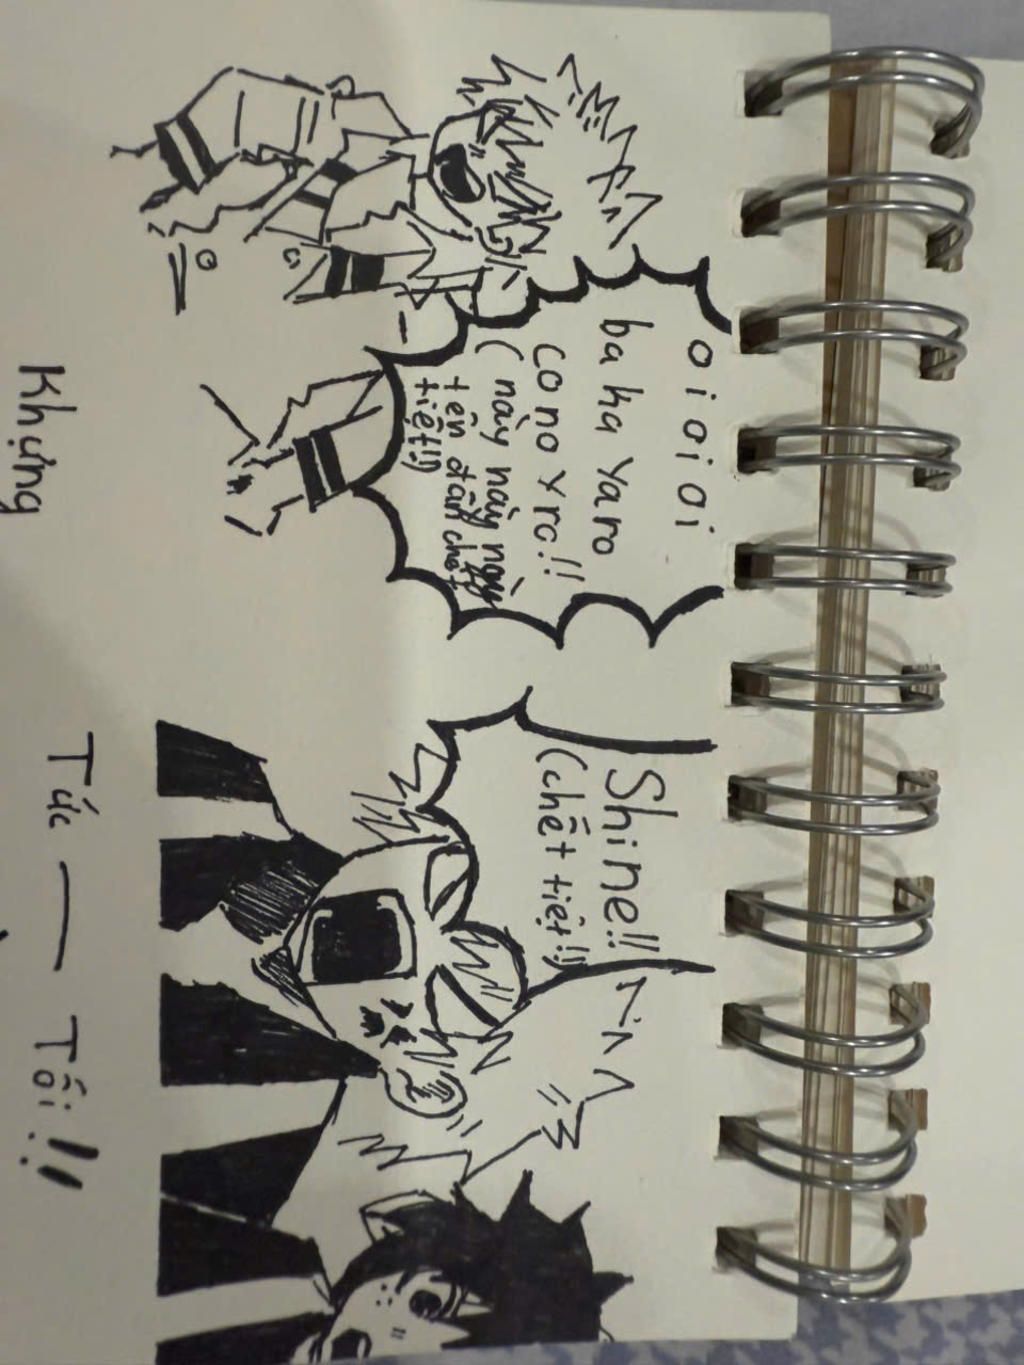 oi oi oi
ba ka yaro
co no yro!!
( này này này
tên đần chết
tiệt!!)
Shine!!
(chết tiệt!!)
Khựng
Tức — Tối!!